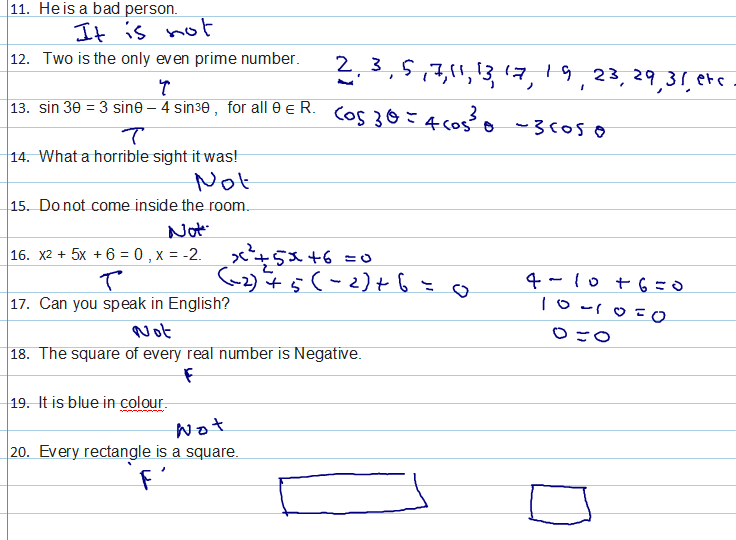 11. He is a bad person.
It is not
12. Two is the only even prime number. 2, 3, 5, 7, 11, 13, 17, 19, 23, 29, 31, etc.
T
13. sin 3θ = 3 sinθ – 4 sin3θ , for all θ ∈ R. cos 3θ = 4cos³θ - 3cosθ
T
14. What a horrible sight it was!
Not
15. Do not come inside the room.
Not
16. x2 + 5x + 6 = 0 , x = -2. x² + 5x + 6 = 0
T (-2)² + 5(-2) + 6 = 0 4 - 10 + 6 = 0
17. Can you speak in English? 10 - 10 = 0
Not 0 = 0
18. The square of every real number is Negative.
F
19. It is blue in colour.
Not
20. Every rectangle is a square.
'F'